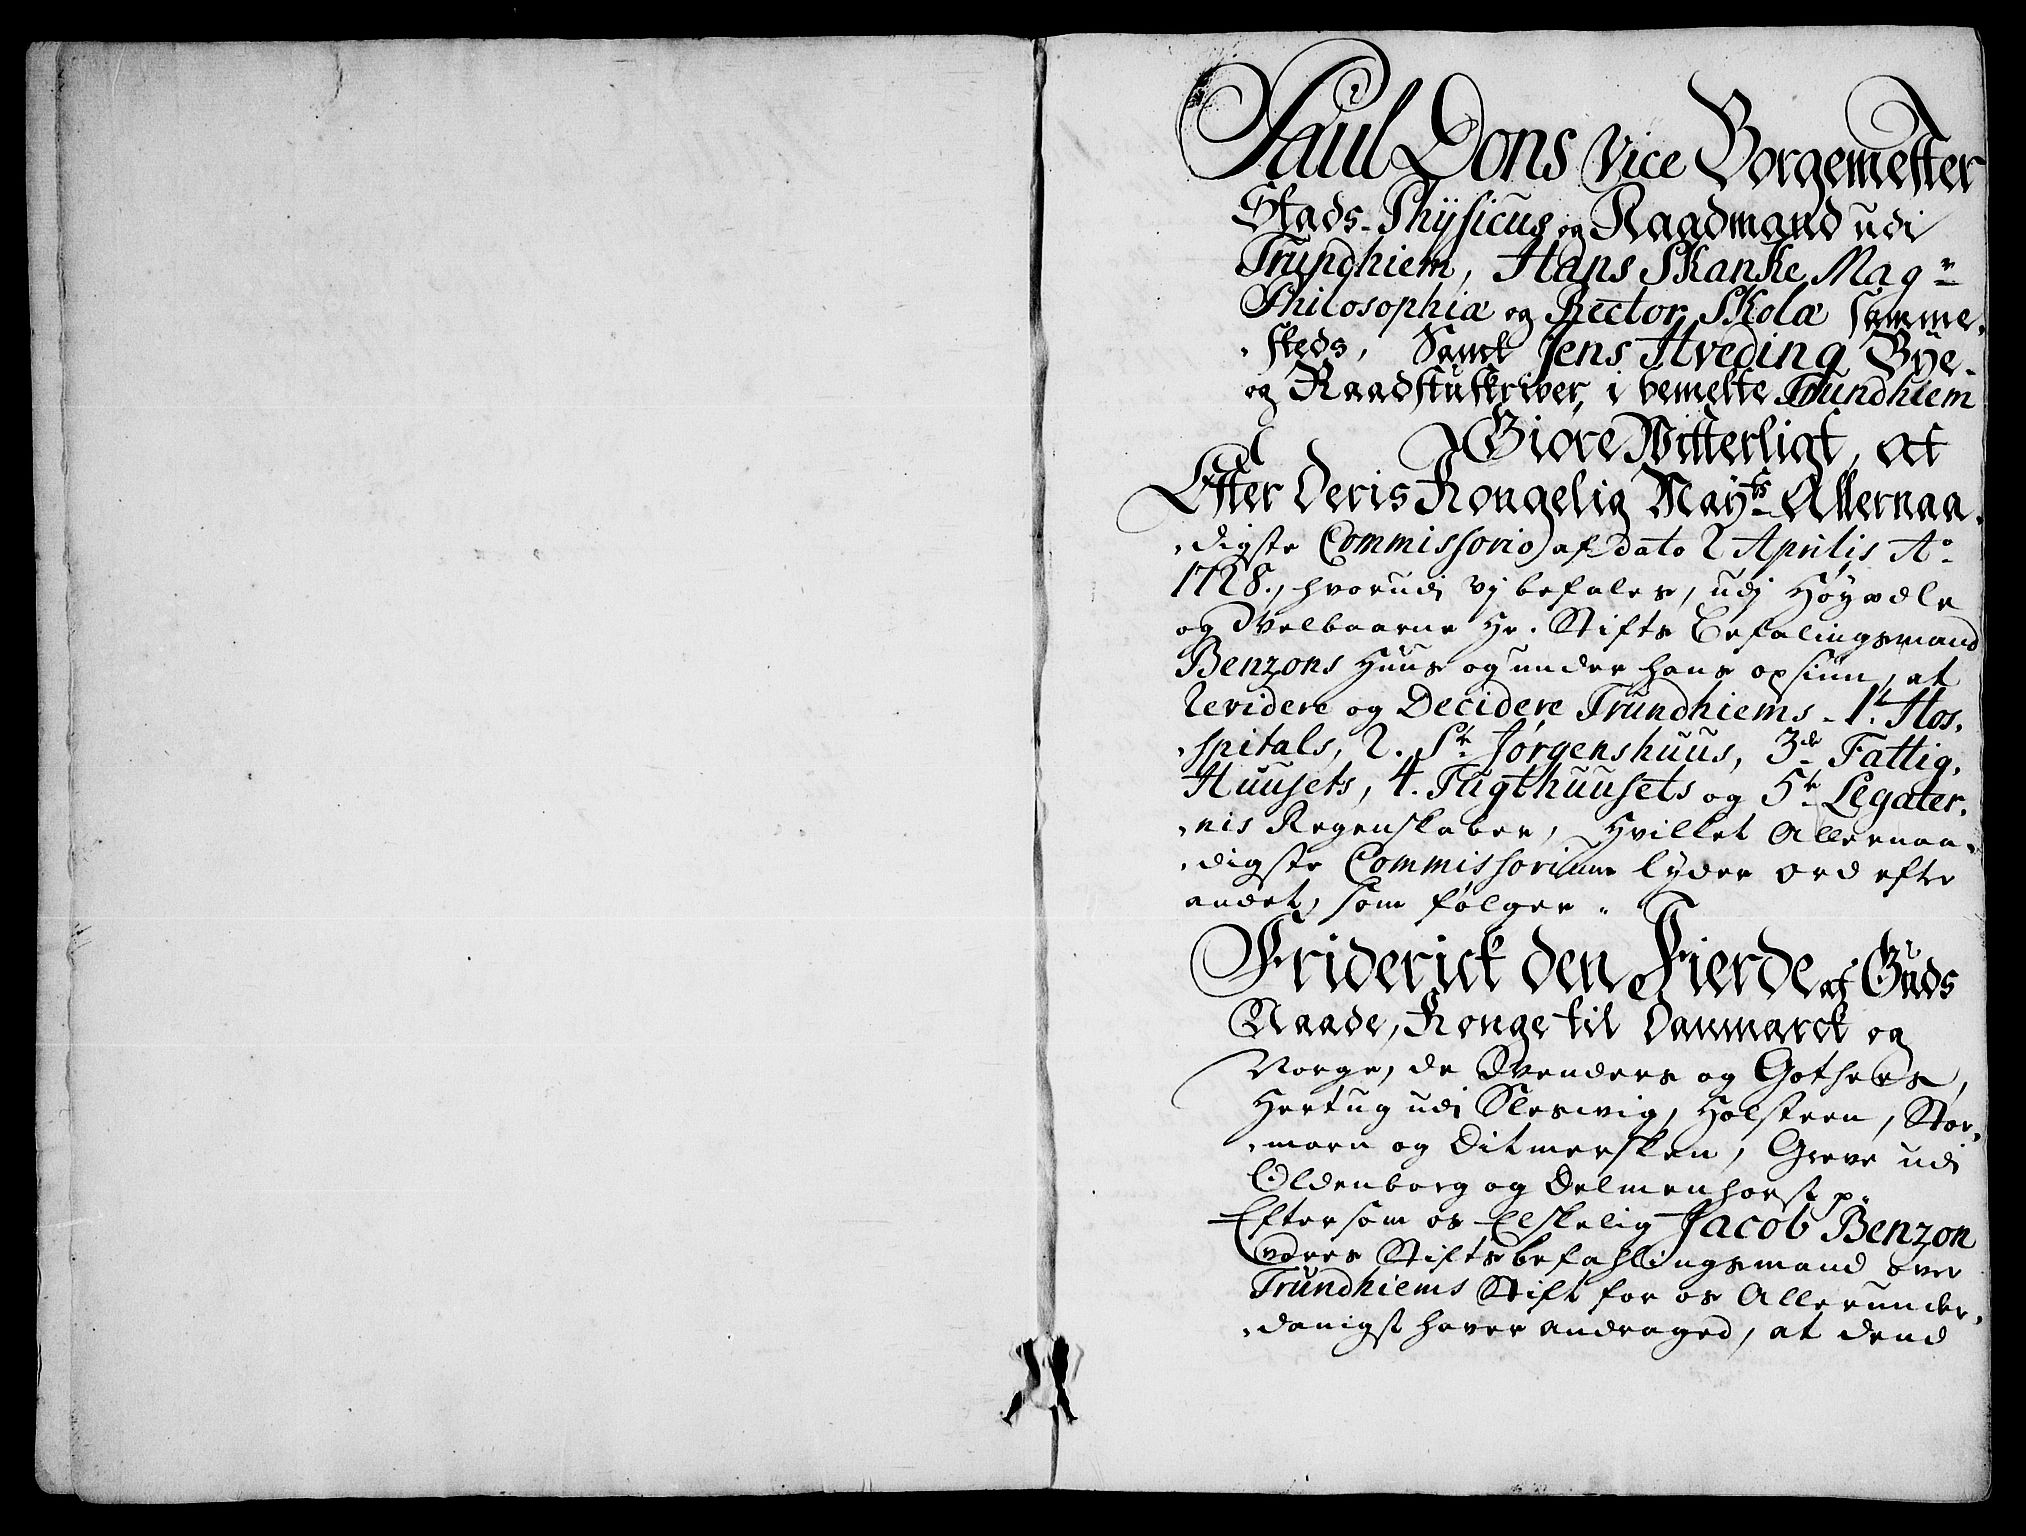 Paul Dons Vice Borgemester
Stads-Physicus og Raadmand udi
Trundhiem, Hans Skanke Magr
Philosophiæ og Rector Skolæ samme,
,steds, Samt Jens Hveding Bye-
og Raadstuskriver, i bemelte Trundhiem
Giøre Witterligt, at
Efter Deris Kongelig Mayts Allernaa,
,digste Commissorio af dato 2 Aprilis Ao
1728., hvorudi vj befales, udj Høyædle
og Velbaarne Hr. Stifts Befalingsmand
Benzons Huus og under hans opsiun, at
Revidere og Decidere Trundhiems 1t Hos,
,spitals, 2. St Jørgenshuus, 3de Fattig,
Huusets, 4. Tugthuusets og 5te Legater,
,nis Regenskaber, Hvilket Allernaa,
,digste Commissorium lyder ord efter
andet, som følger.
Friderick den Fierde af Guds
Naade, Konge til Danmarck og
Norge, de Venders og Gothers,
Hertug udi Sleswig, Holsteen, Stor,
,marn og Ditmersken, Greve udi
Oldenborg og Delmenhorst p.
Eftersom os Elskelig Jacob Benzon
vores Stiftsbefahlingsmand over
Trundhiems Stift for os Allerunder,
,danigst haver andraged, at dend